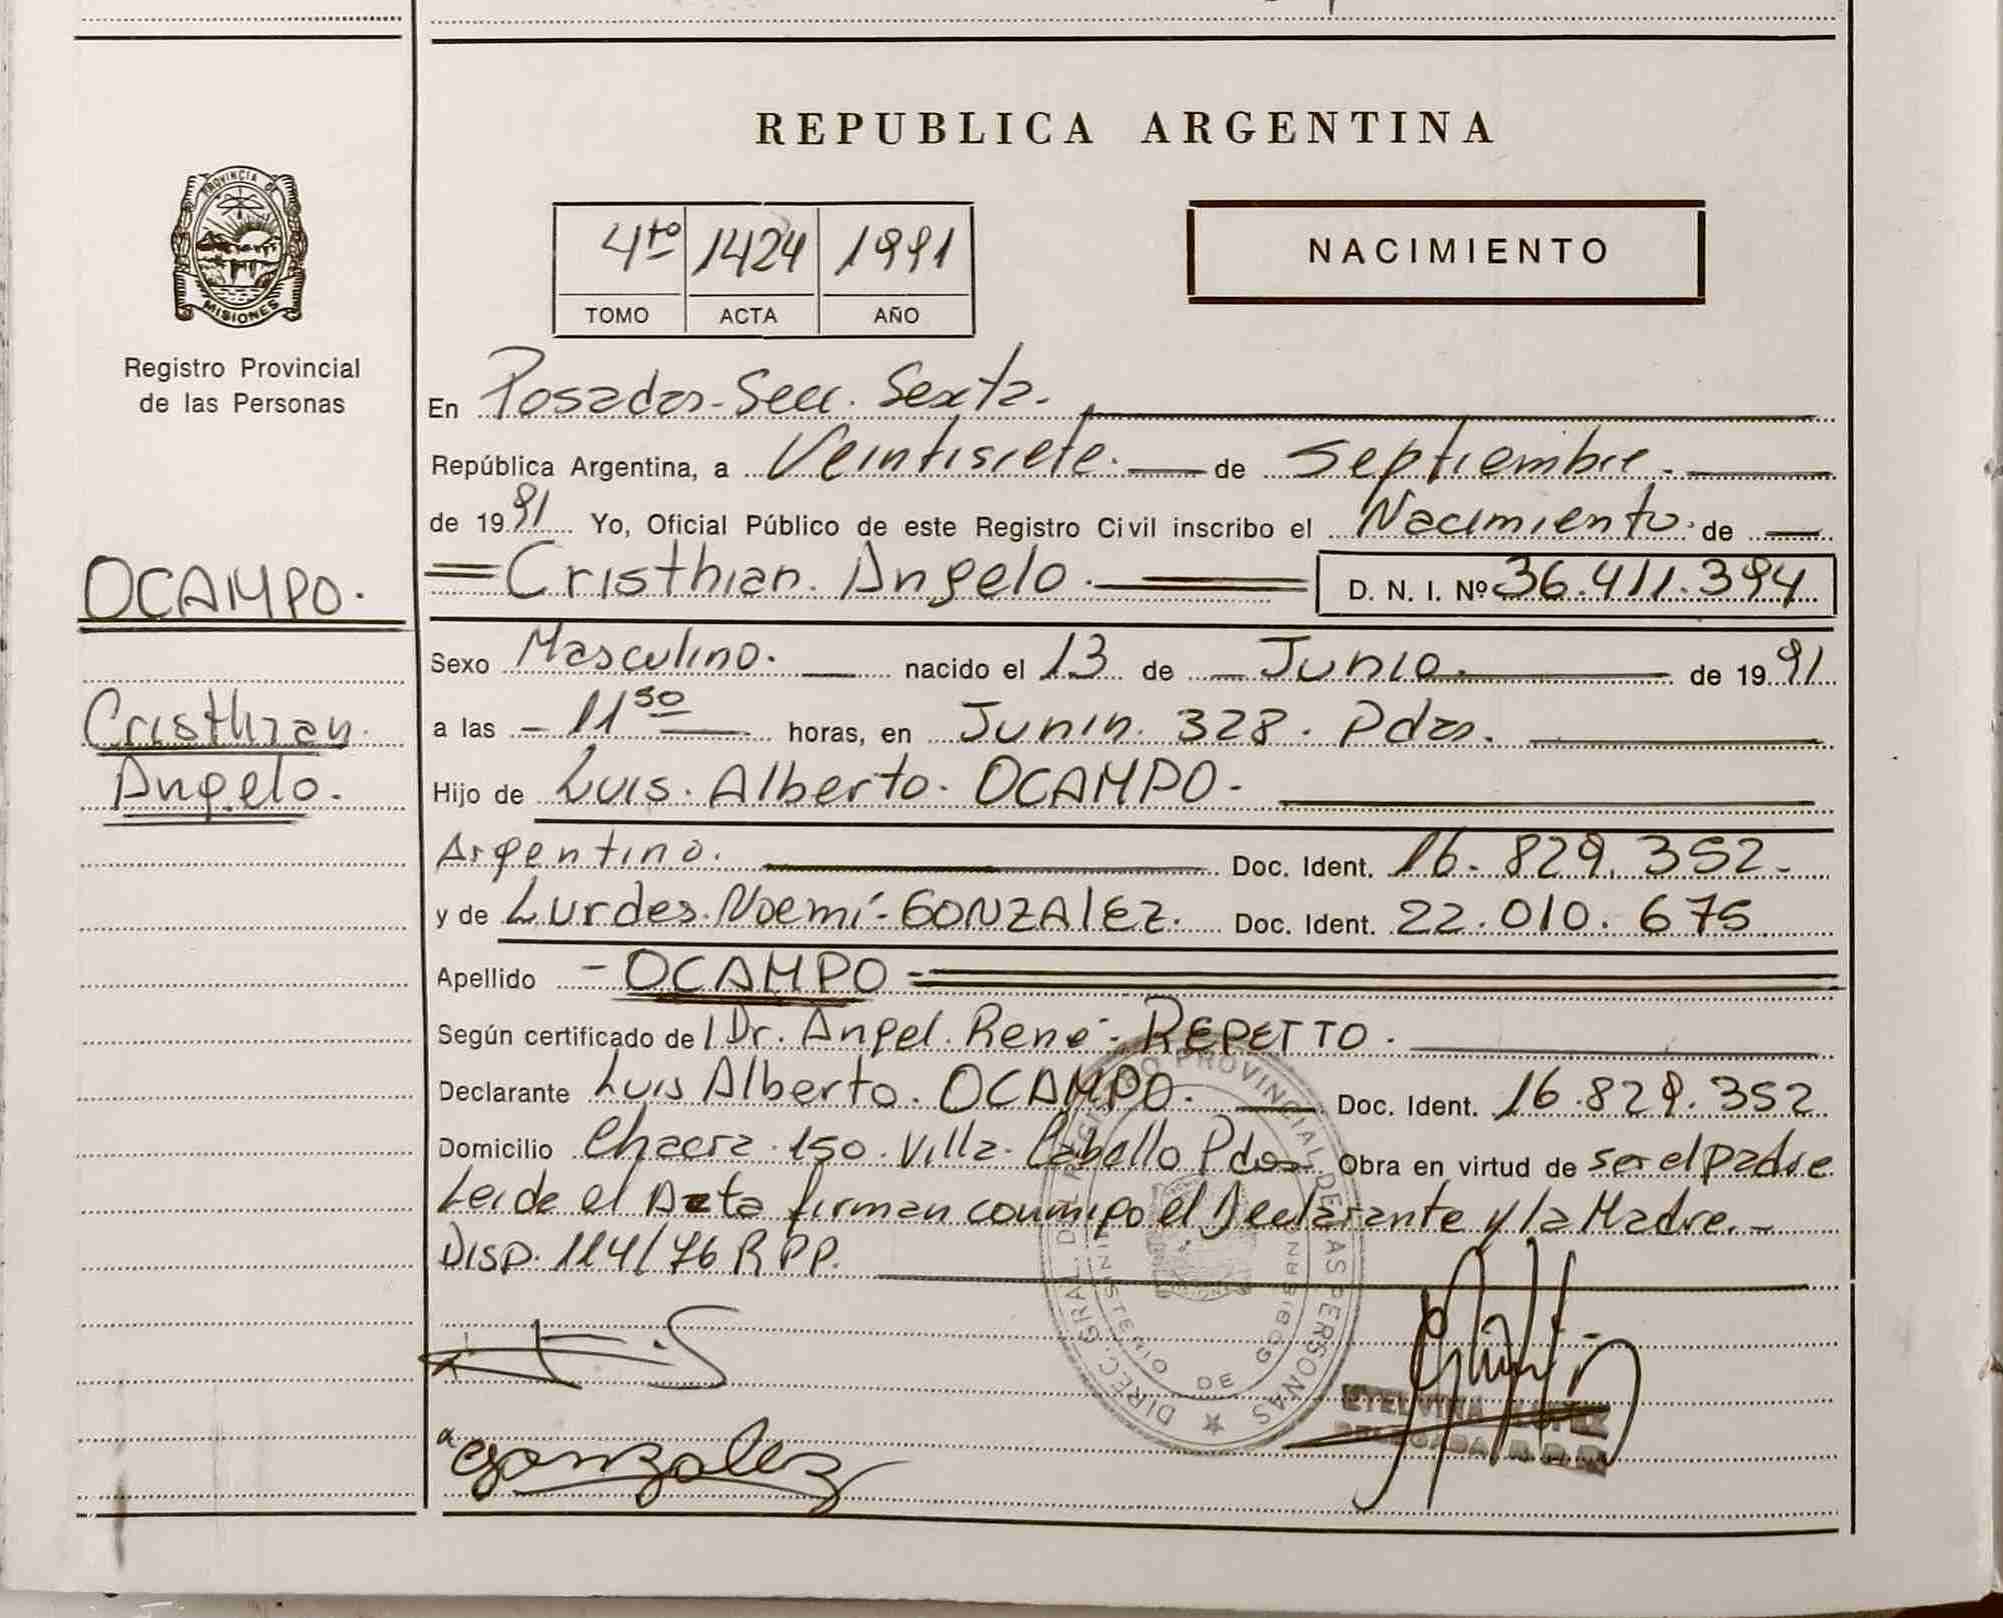 REPUBLICA ARGENTINA
PROVINCIA DE
MISIONES
Registro Provincial
de las Personas
4to 1424 1991
TOMO ACTA AÑO
NACIMIENTO
En Posadas - Secc. Sexta.
República Argentina, a Veintisiete. de Septiembre.
de 1991 Yo, Oficial Público de este Registro Civil inscribo el Nacimiento. de
OCAMPO.
Cristhian
Angelo.
Cristhian. Angelo. D. N. I. Nº 36.411.394
Sexo Masculino. nacido el 13 de Junio de 1991
a las 11 30 horas, en Junin. 328. Pdas.
Hijo de Luis. Alberto. OCAMPO.
Argentino. Doc. Ident. 16.829.352.
y de Lurdes. Noemí. GONZALEZ. Doc. Ident. 22.010.675
Apellido OCAMPO
Según certificado de l Dr. Angel. René. REPETTO.
Declarante Luis Alberto. OCAMPO. Doc. Ident. 16.829.352
Domicilio Chacra. 150. Villa. Cabello Pdas Obra en virtud de ser el padre
Leide el Acta firman conmigo el Declarante y la Madre.
Disp. 114/76 R PP.
DIREC. GRAL. DEL REGISTRO PROVINCIAL DE LAS PERSONAS
MINISTERIO DE GOBIERNO
ETELVINA LOPEZ
DELEGADA R.P.P.
Gonzalez